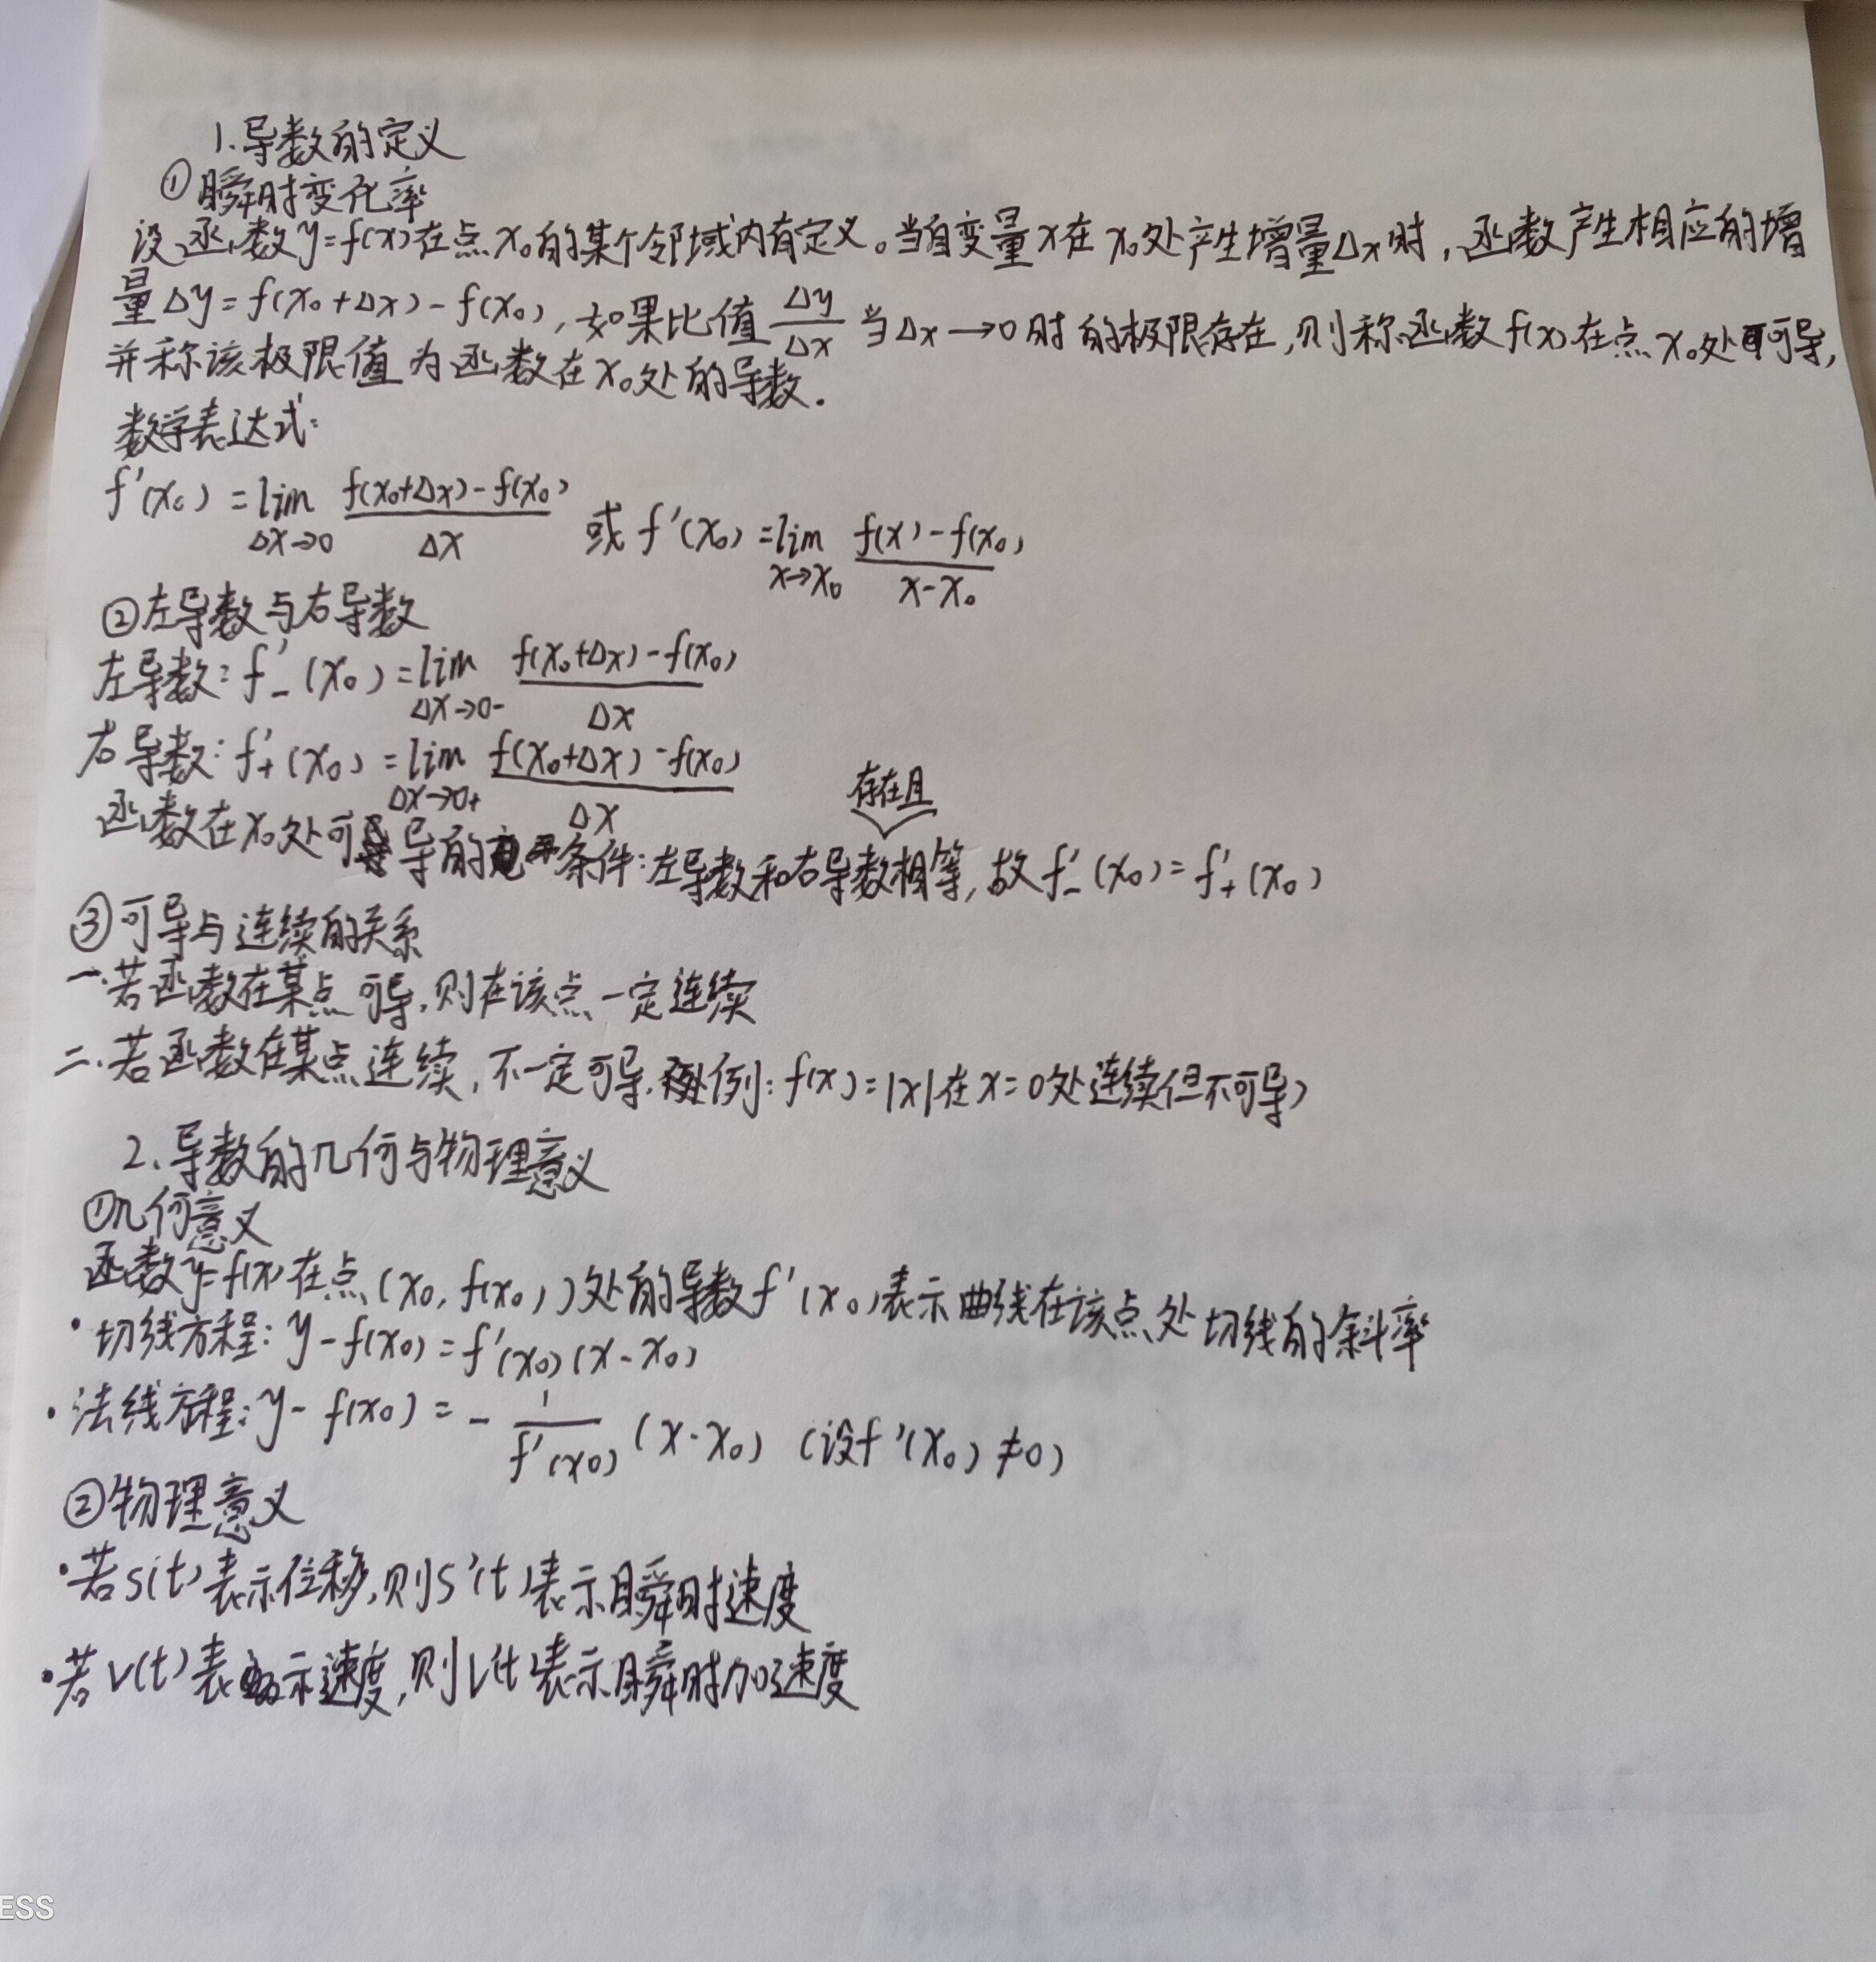 1.导数的定义
①瞬时变化率
设函数y=f(x)在点x₀的某个邻域内有定义。当自变量x在x₀处产生增量Δx时,函数产生相应的增
量Δy=f(x₀+Δx)-f(x₀),如果比值Δy/Δx当Δx→0时的极限存在,则称函数f(x)在点x₀处可导,
并称该极限值为函数在x₀处的导数.
数学表达式:
f'(x₀)=lim Δx→0 (f(x₀+Δx)-f(x₀))/Δx 或f'(x₀)=lim x→x₀ (f(x)-f(x₀))/(x-x₀)
②左导数与右导数
左导数:f'₋(x₀)=lim Δx→0- (f(x₀+Δx)-f(x₀))/Δx
右导数:f'₊(x₀)=lim Δx→0+ (f(x₀+Δx)-f(x₀))/Δx
函数在x₀处可导的条件:左导数和右导数存在且相等,故f'₋(x₀)=f'₊(x₀)
③可导与连续的关系
一.若函数在某点可导,则在该点一定连续
二.若函数在某点连续,不一定可导.例:f(x)=|x|在x=0处连续但不可导)
2.导数的几何与物理意义
①几何意义
函数y=f(x)在点(x₀,f(x₀))处的导数f'(x₀)表示曲线在该点处切线的斜率
·切线方程:y-f(x₀)=f'(x₀)(x-x₀)
·法线方程:y-f(x₀)=-1/f'(x₀)(x-x₀)(设f'(x₀)≠0)
②物理意义
·若s(t)表示位移,则s'(t)表示瞬时速度
·若v(t)表示速度,则v'(t)表示瞬时加速度
ESS